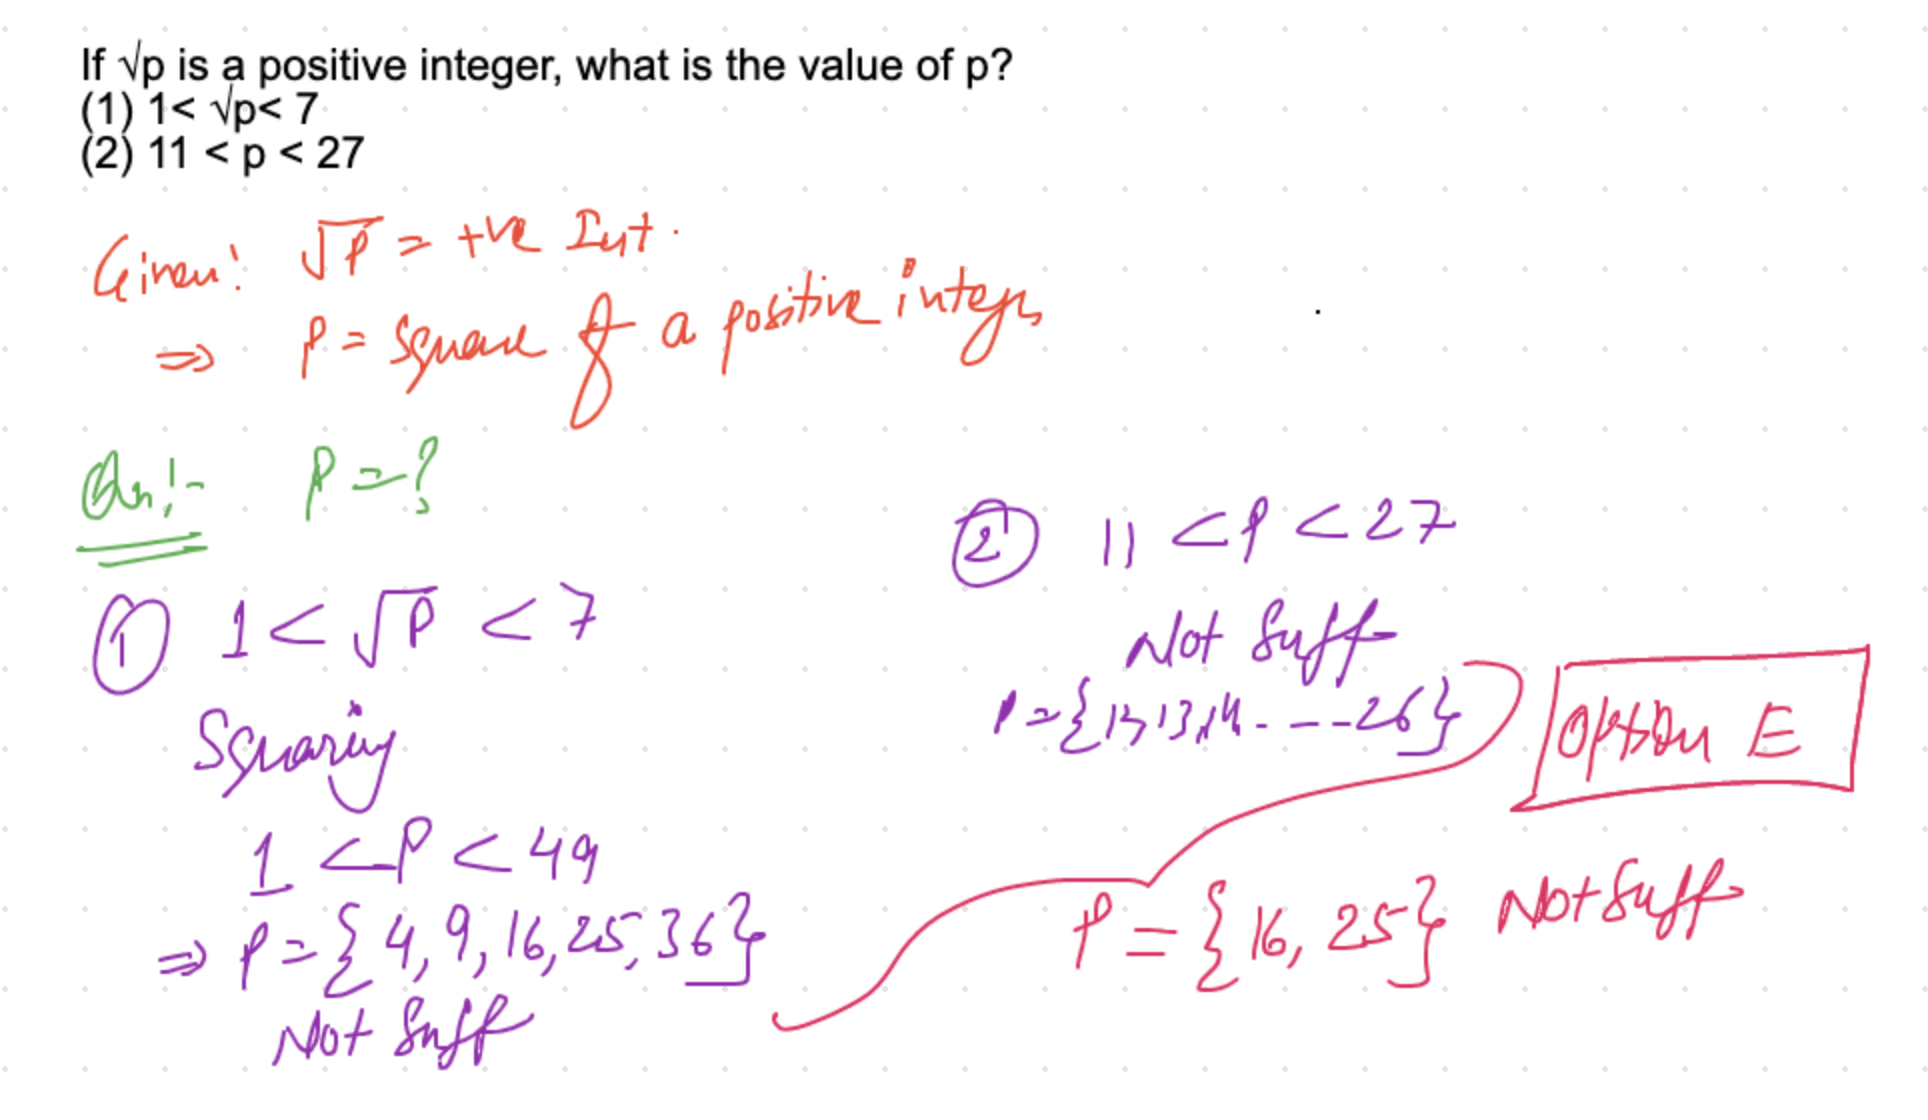 If √p is a positive integer, what is the value of p?
(1) 1< √p< 7
(2) 11 < p < 27
Given: √P = +ve Int.
⇒ P = Square of a positive integer
Qn:- P = ?
① 1 < √P < 7
Squaring
1 < P < 49
⇒ P = {4, 9, 16, 25, 36}
Not Suff
② 11 < P < 27
Not Suff
P = {12, 13, 14 - - - - 26}
Option E
P = {16, 25} Not Suff